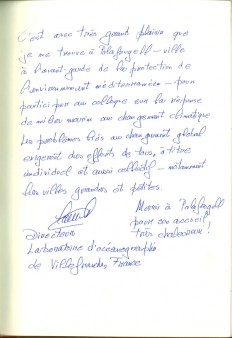 C'est avec très grand plaisir que
je me trouve à Palafrugell – ville
à l'avant-garde de la protection de
l'environnement méditerranéen – pour
participer au colloque sur la réponse
du milieu marin au changement climatique
Les problèmes liés au changement global
exigeront des efforts de tous, à titre
individuel et aussi collectif – notamment
les villes grandes et petites.
Merci à Palafrugell
pour son accueil
très chaleureux !
Directeur
Laboratoire d'océanographie
de Villefranche, France